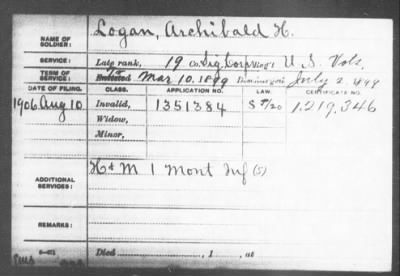 NAME OF SOLDIER: Logan, Archibald H.
SERVICE: Late rank, 19 Co. Sig. Corps Reg't U. S. Vols.
TERM OF SERVICE: Enlisted Mar 10, 1899 Discharged July 2, 1899
DATE OF FILING. CLASS. APPLICATION NO. LAW. CERTIFICATE NO.
1906 Aug 10 Invalid, 1351384 1,219,346
Widow,
Minor,
ADDITIONAL SERVICES: H & M 1 Mont Inf (S)
REMARKS:
Died , 1 , at